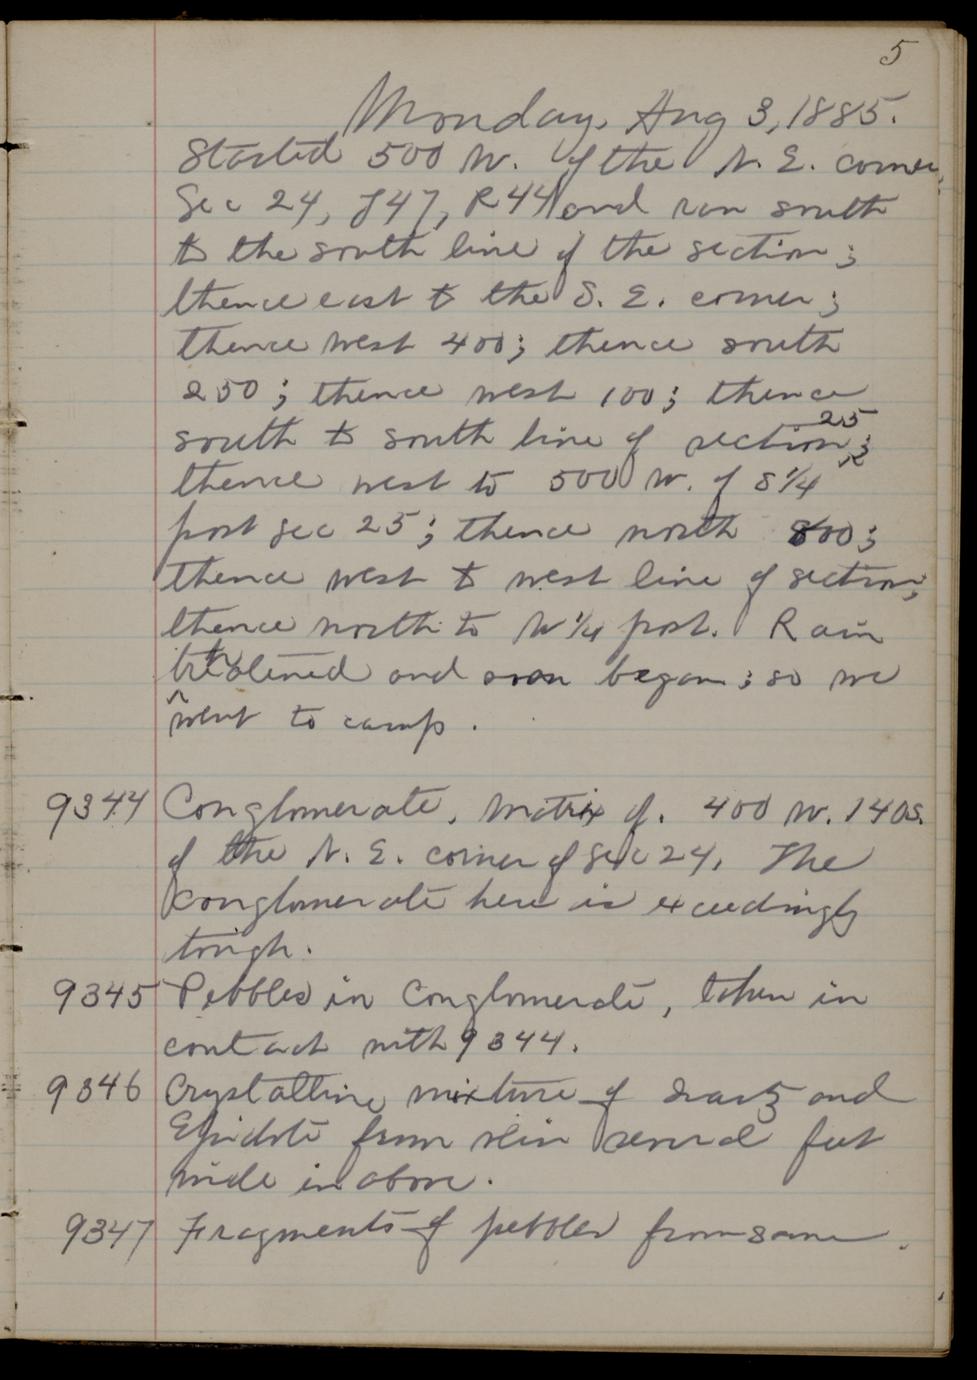 5
Monday, Aug 3, 1885.
Started 500 W. of the N. E. corner
Sec 24, T47, R44 and ran south
to the south line of the section;
thence east to the S. E. corner;
thence west 400; thence south
250; thence west 100; thence
south to south line of section 25;
thence west to 500 W. of S 1/4
post sec 25; thence north 800;
thence west to west line of section;
thence north to W 1/4 post. Rain
threatened and soon began; so we
went to camp.
9344 Conglomerate, matrix of. 400 W. 140 S.
of the N. E. corner of Sec 24. The
conglomerate here is exceedingly
tough.
9345 Pebbles in Conglomerate, taken in
contact with 9344.
9346 Crystalline mixture of Quartz and
Epidote from vein several feet
wide in above.
9347 Fragments of pebbles from same.